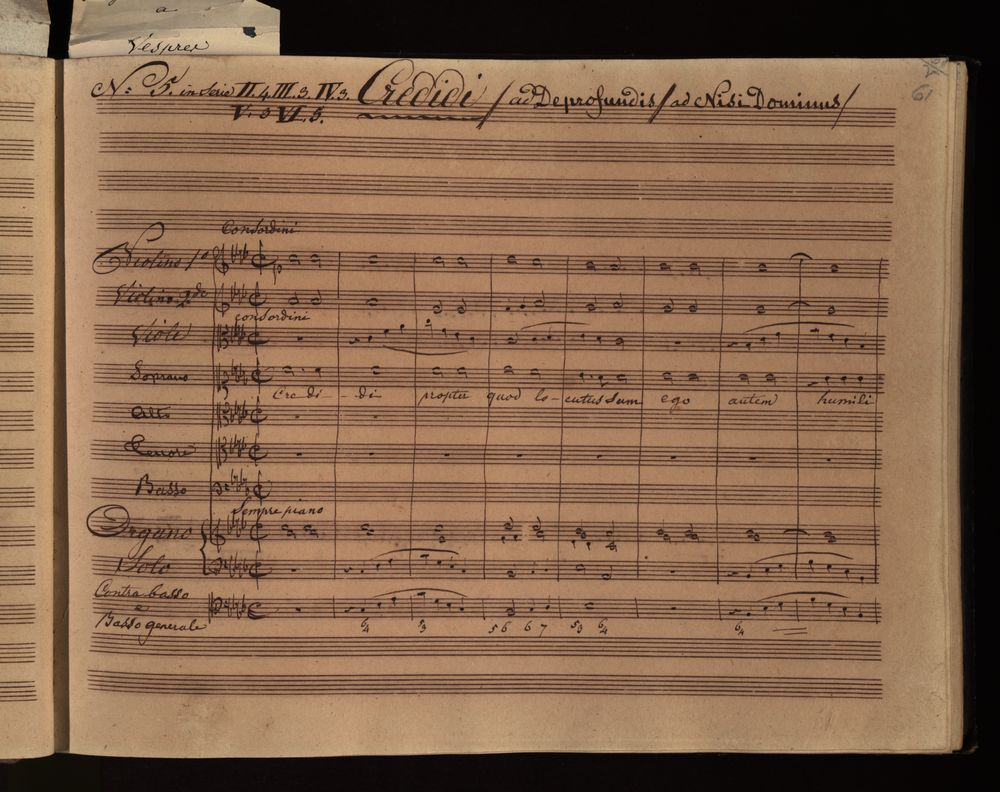 a
Vespres
61
Nº 5. in Serie II. 4. III. 3. IV. 3. Credidi / ad De profundis / ad Nisi Dominus /
V. 3 VI. 5.
Con sordini
Violino 1º
p
Violino 2do
con sordini
Viole
Soprano
Cre - di - di propter quod lo - cutus sum ego autem humili
Alti
Tenore
Basso
Sempre piano
Organo
Solo
Contra basso
e
Basso generale
6/4 5/3 5 6 6 7 5/3 6/4 6/4